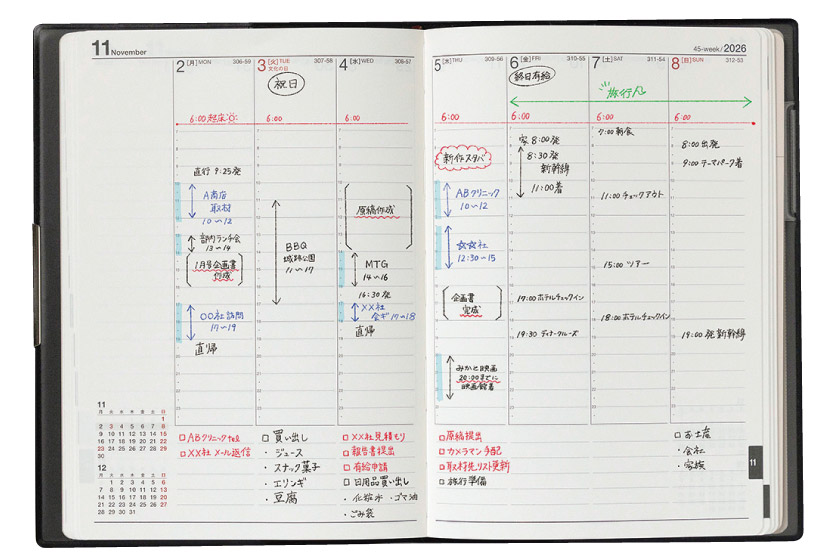 11 November
45-week/2026
2 [月] MON 306-59
3 [火] TUE 307-58
文化の日
4 [水] WED 308-57
5 [木] THU 309-56
6 [金] FRI 310-55
7 [土] SAT 311-54
8 [日] SUN 312-53
6:00 起床
直行 9:25発
A商店
取材
10～12
部内ランチ会
13～14
1月号企画書
作成
〇〇社訪問
17～19
直帰
祝日
6:00
BBQ
城跡公園
11～17
6:00
原稿作成
MTG
14～16
16:30発
××社
会ギ 17～18
直帰
6:00
新作スタバ
ABクリニック
10～12
☆☆社
12:30～15
企画書
完成
みかと映画
20:00までに
映画館着
終日有給
旅行
6:00
家 8:00発
8:30発
新幹線
11:00着
17:00 ホテルチェックイン
19:30 ディナークルーズ
6:00
7:00 朝食
11:00 チェックアウト
15:00 ツアー
18:00 ホテルチェックイン
6:00
8:00 出発
9:00 テーマパーク着
19:00 発新幹線
11
月 火 水 木 金 土 日
1
2 3 4 5 6 7 8
9 10 11 12 13 14 15
16 17 18 19 20 21 22
23 24 25 26 27 28 29
30
12
月 火 水 木 金 土 日
1 2 3 4 5 6
7 8 9 10 11 12 13
14 15 16 17 18 19 20
21 22 23 24 25 26 27
28 29 30 31
□ABクリニックtel
□××社 メール返信
□買い出し
・ジュース
・スナック菓子
・エリンギ
・豆腐
□××社見積もり
□報告書提出
□有給申請
□日用品買い出し
・化粧水 ・ゴマ油
・ごみ袋
□原稿提出
□カメラマン手配
□取材先リスト更新
□旅行準備
□お土産
・会社
・家族
11